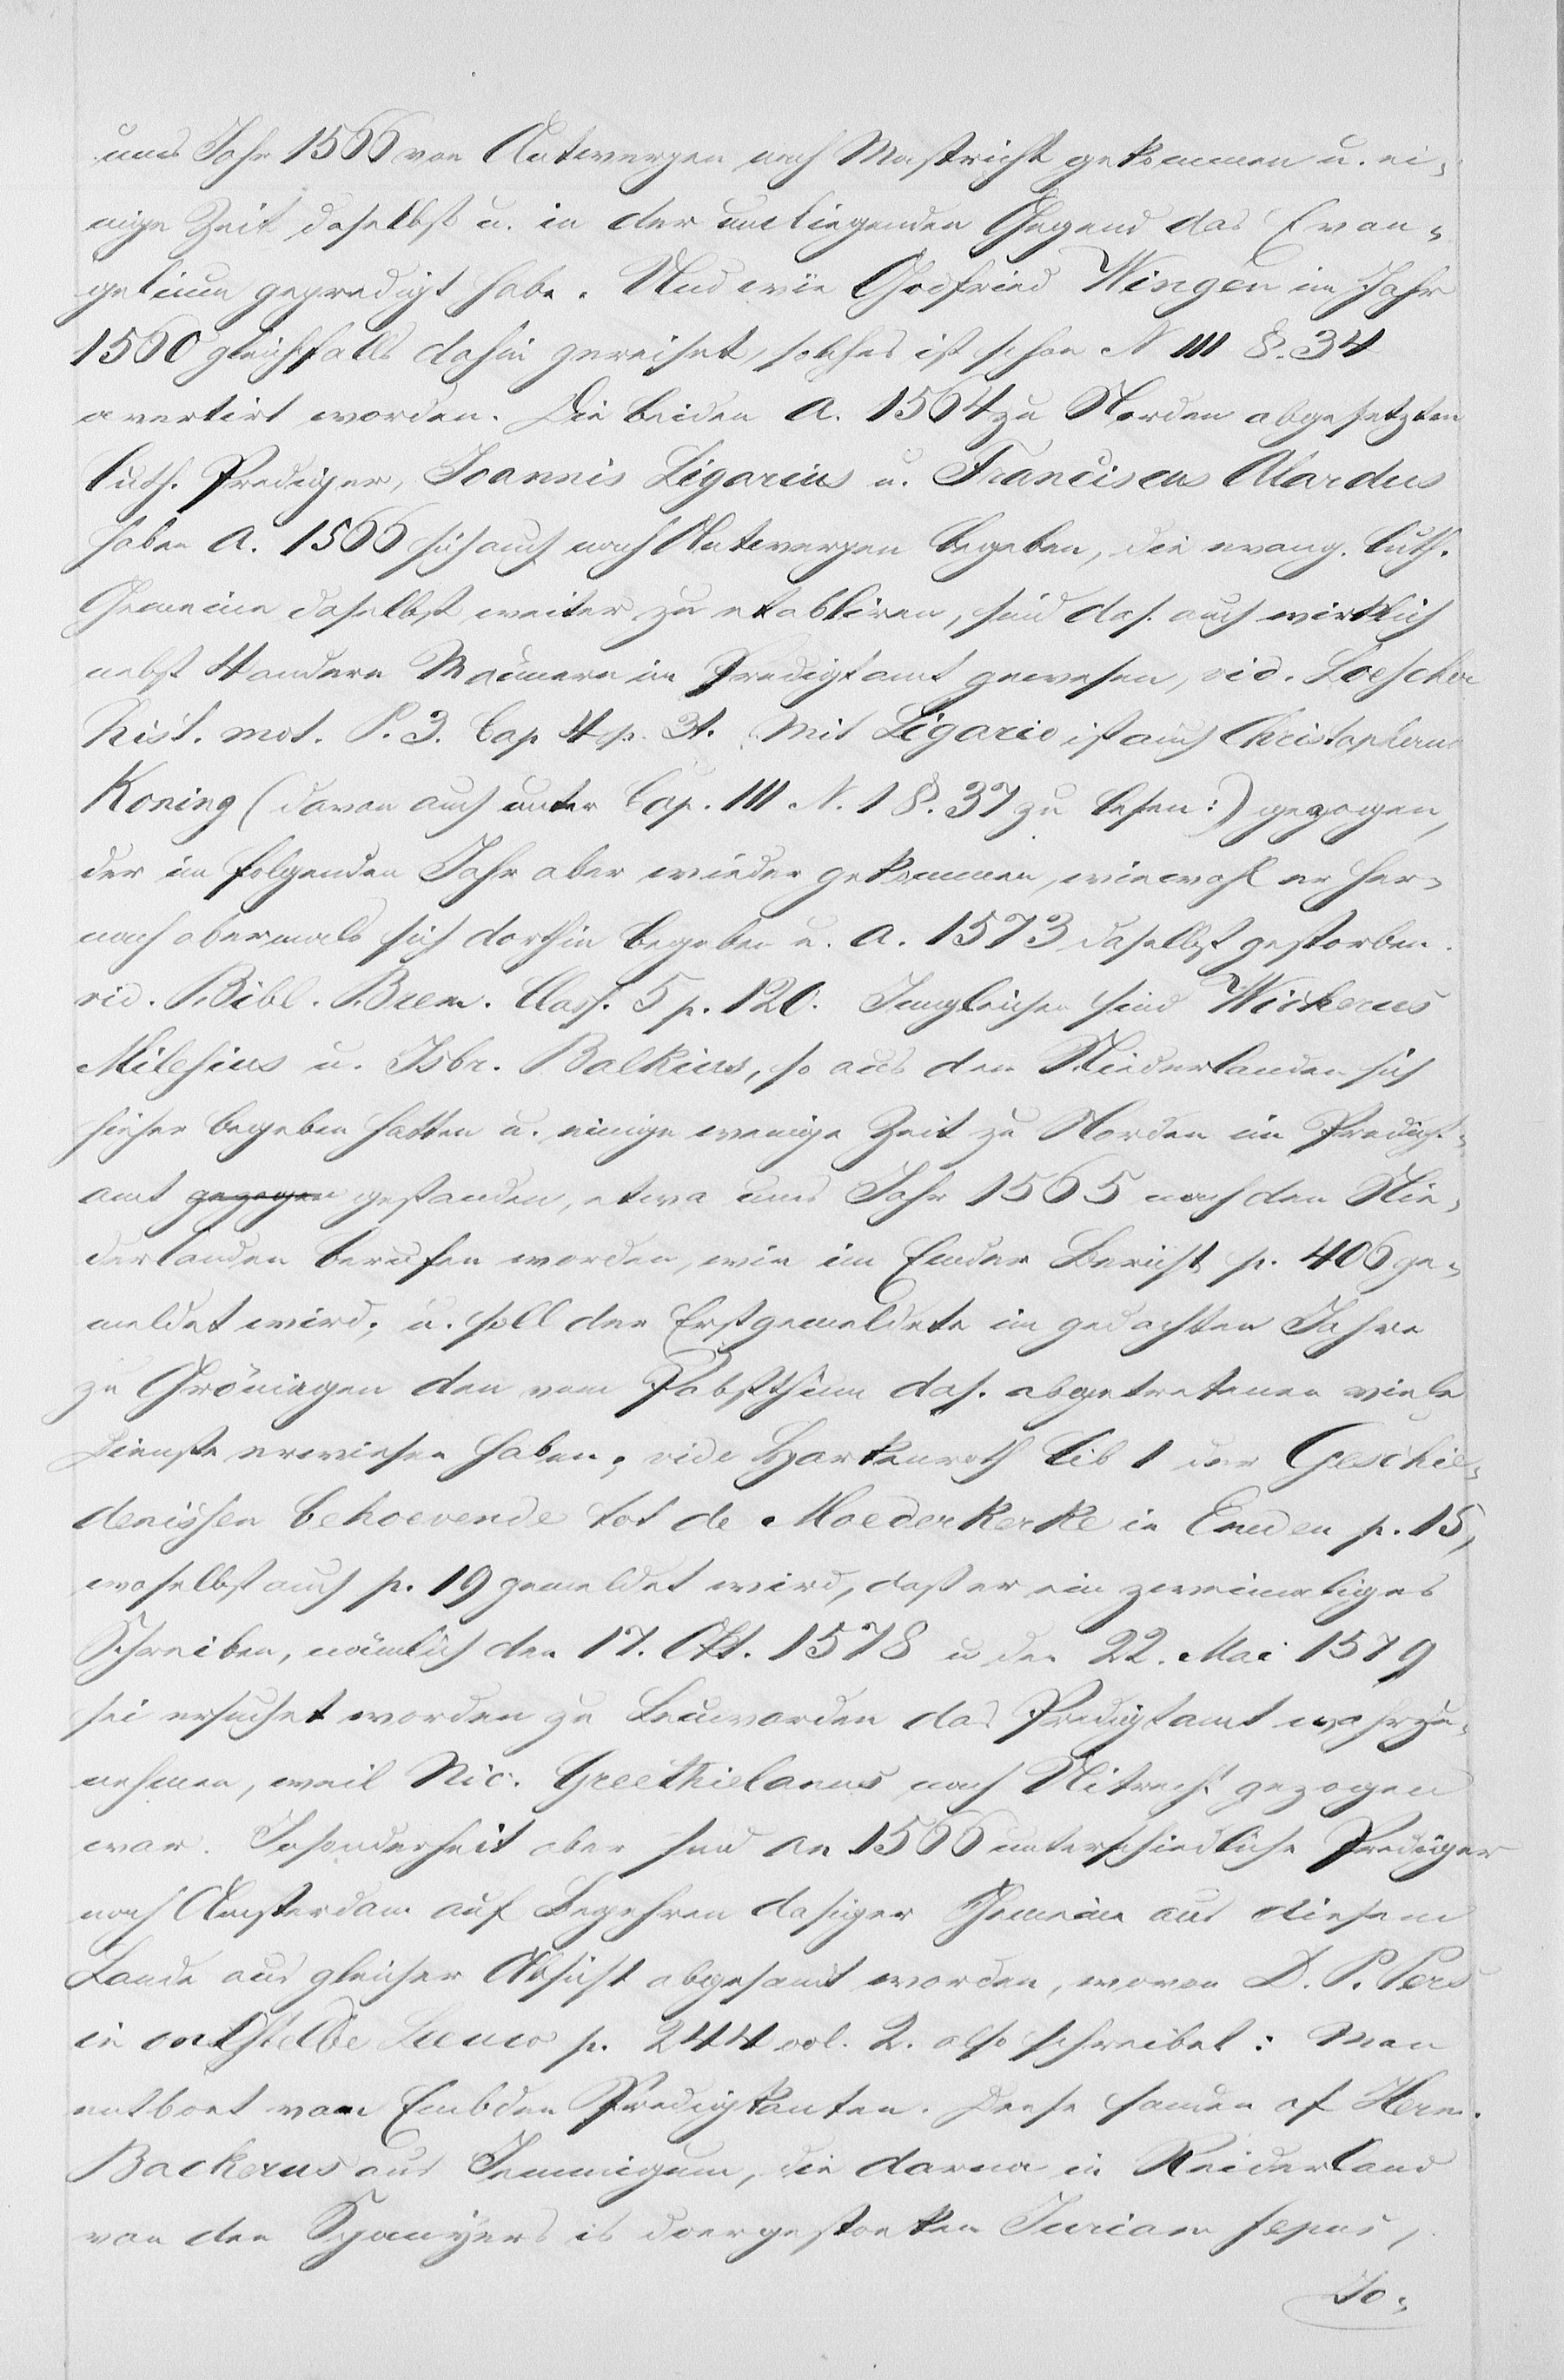 ums Jahr 1566 von Antwerpen nach Mastricht gekommen u. ei-
nige Zeit daselbst u. in der umliegenden Gegend das Evan-
gelium gepredigt habe. Und wie Godfried Wingen im Jahr
1560 gleichfalls dahin gereiset, solches ist schon N III §. 34
avertirt worden. Die beiden A. 1564 zu Norden abgesetzten
luth. Prediger, Joannis Ligarius u. Franciscus Alardus
haben A. 1566 sich auch nach Antwerpen begeben, die evang. luth.
Gemeine daselbst weiter zu etabliren, sind das. auch wirklich
nebst 4 andern Männern im Predigtamt gewesen, vid. Loescher
hist. mot. P. 3. Cap 4 p. 31. Mit Ligario ist auch Christophorus
Koning (davon auch unter Cap. III N. 1 §. 37 zu lesen:) gezogen,
der im folgenden Jahr aber wieder gekommen, wiewohl er her-
nach abermals sich dorthin begeben u. a. 1573 daselbst gestorben.
vid. Bibl. Brem. Class. 5 p. 120. Imgleichen sind Wickerus
Milesius u. Isbr. Balkius, so aus den Niederlanden sich
hieher begeben hatten u. einige wenige Zeit zu Norden im Predigt-
amt gezogen gestanden, etwa ums Jahr 1565 nach den Nie-
derlanden berufen worden, wie im Emder Bericht p. 406 ge-
meldet wird; u. soll der Erstgemeldete im gedachten Jahre
zu Gröningen den vom Pabstthum das. abgetretenen viele
Dienste erwiesen haben; vide Harkenroth lib 1 der Geschie-
denissen behoevende tot de Moederkerke in Emden p. 15,
woselbst auch p. 19 gemeldet wird, daß er ein zweimaliges
Schreiben, nämlich den 17. Okt. 1578 u den 22. Mai 1579
sei ersuchet worden zu Leuwarden das Predigtamt wahrzu-
nehmen, weil Nic. Greethielanus nach Uitrecht gezogen
war. Insonderheit aber sind An 1566 unterschiedliche Prediger
nach Amsterdam auf Begehren dasiger Gemeine aus diesem
Lande aus gleicher Absicht abgesandt worden, wovon D. P. Pers
in ontstelde Leeuw p. 244 vol. 2. also schreibet: Man
entboet van Embden Predigkanten. Deese sanden af Herm.
Backerus aus Jemmigum, die darna in Reiderland
van den Spanjers is doergestoeken Juriaen sepus,
Jo-